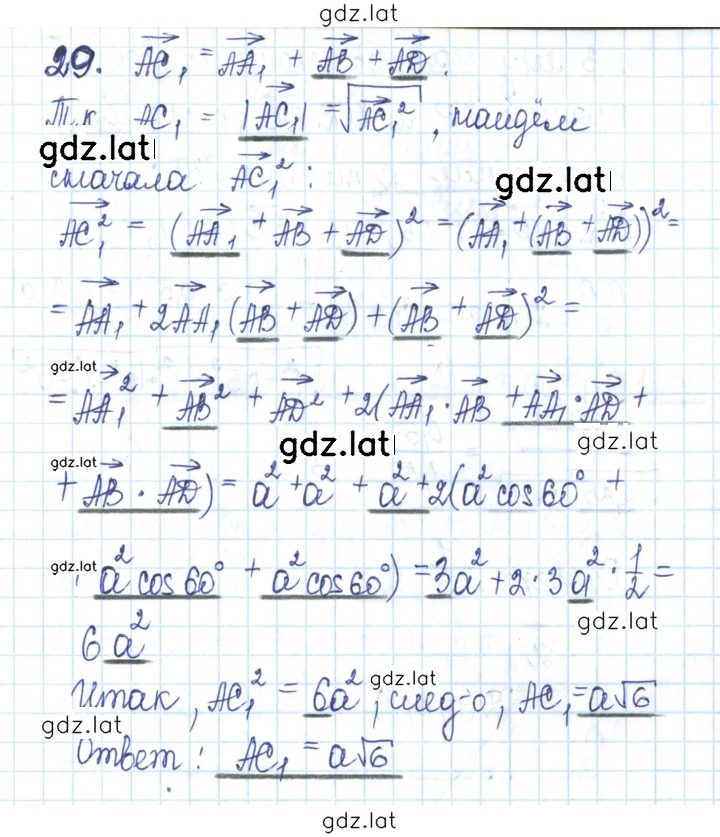 gdz.lat
29. AC₁ = AA₁ + AB + AD.
Т.к AC₁ = |AC₁| = √AC₁², найдём
gdz.lat
сначала AC₁²: gdz.lat
AC₁² = (AA₁ + AB + AD)² = (AA₁ + (AB + AD))² =
= AA₁ + 2AA₁(AB + AD) + (AB + AD)² =
gdz.lat
= AA₁² + AB² + AD² + 2(AA₁·AB + AA₁·AD +
gdz.lat gdz.lat
gdz.lat
+ AB · AD) = a² + a² + a² + 2(a² cos 60° +
gdz.lat
a² cos 60° + a² cos 60°) = 3a² + 2·3a²·1/2 =
gdz.lat
6a²
gdz.lat
Итак, AC₁² = 6a², след-о, AC₁ = a√6
gdz.lat
Ответ: AC₁ = a√6
gdz.lat